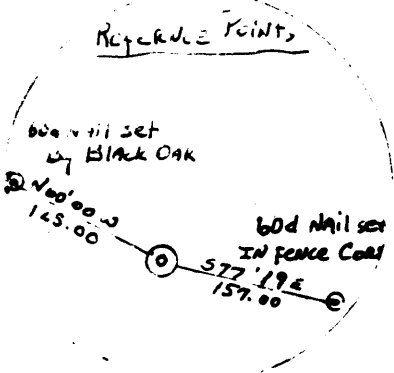 Reference Points
60d Nail set
By Black Oak
N60°00 W
125.00
60d Nail set
IN Fence Corn
S77°19 E
157.00